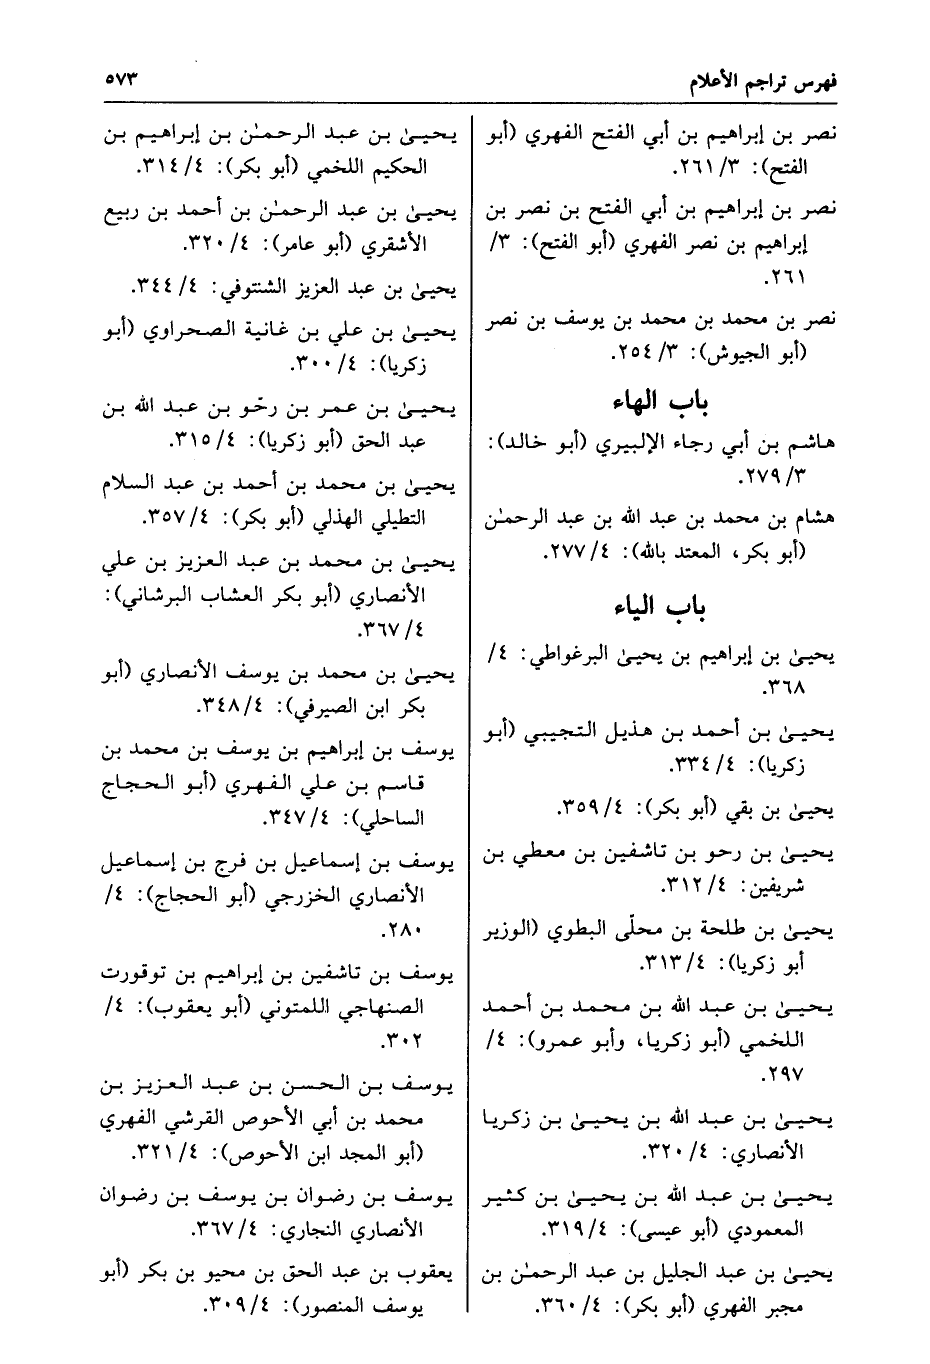 فهرس تراجم الأعلام ٥٧٣
نصر بن إبراهيم بن أبي الفتح الفهري (أبو
الفتح): ٣/ ٢٦١.
نصر بن إبراهيم بن أبي الفتح بن نصر بن
إبراهيم بن نصر الفهري (أبو الفتح): ٣/
٢٦١.
نصر بن محمد بن محمد بن يوسف بن نصر
(أبو الجيوش): ٣/ ٢٥٤.
باب الهاء
هاشم بن أبي رجاء الإلبيري (أبو خالد):
٣/ ٢٧٩.
هشام بن محمد بن عبد الله بن عبد الرحمٰن
(أبو بكر، المعتد بالله): ٤/ ٢٧٧.
باب الياء
يحيىٰ بن إبراهيم بن يحيىٰ البرغواطي: ٤/
٣٦٨.
يحيىٰ بن أحمد بن هذيل التجيبي (أبو
زكريا): ٤/ ٣٣٤.
يحيىٰ بن بقي (أبو بكر): ٤/ ٣٥٩.
يحيىٰ بن رحو بن تاشفين بن معطي بن
شريفين: ٤/ ٣١٢.
يحيىٰ بن طلحة بن محلّى البطوي (الوزير
أبو زكريا): ٤/ ٣١٣.
يحيىٰ بن عبد الله بن محمد بن أحمد
اللخمي (أبو زكريا، وأبو عمرو): ٤/
٢٩٧.
يحيىٰ بن عبد الله بن يحيىٰ بن زكريا
الأنصاري: ٤/ ٣٢٠.
يحيىٰ بن عبد الله بن يحيىٰ بن كثير
المعمودي (أبو عيسى): ٤/ ٣١٩.
يحيىٰ بن عبد الجليل بن عبد الرحمٰن بن
مجبر الفهري (أبو بكر): ٤/ ٣٦٠.
يحيىٰ بن عبد الرحمٰن بن إبراهيم بن
الحكيم اللخمي (أبو بكر): ٤/ ٣١٤.
يحيىٰ بن عبد الرحمٰن بن أحمد بن ربيع
الأشقري (أبو عامر): ٤/ ٣٢٠.
يحيىٰ بن عبد العزيز الشنتوفي: ٤/ ٣٤٤.
يحيىٰ بن علي بن غانية الصحراوي (أبو
زكريا): ٤/ ٣٠٠.
يحيىٰ بن عمر بن رحّو بن عبد الله بن
عبد الحق (أبو زكريا): ٤/ ٣١٥.
يحيىٰ بن محمد بن أحمد بن عبد السلام
التطيلي الهذلي (أبو بكر): ٤/ ٣٥٧.
يحيىٰ بن محمد بن عبد العزيز بن علي
الأنصاري (أبو بكر العشاب البرشاني):
٤/ ٣٦٧.
يحيىٰ بن محمد بن يوسف الأنصاري (أبو
بكر ابن الصيرفي): ٤/ ٣٤٨.
يوسف بن إبراهيم بن يوسف بن محمد بن
قاسم بن علي الفهري (أبو الحجاج
الساحلي): ٤/ ٣٤٧.
يوسف بن إسماعيل بن فرج بن إسماعيل
الأنصاري الخزرجي (أبو الحجاج): ٤/
٢٨٠.
يوسف بن تاشفين بن إبراهيم بن توقورت
الصنهاجي اللمتوني (أبو يعقوب): ٤/
٣٠٢.
يوسف بن الحسن بن عبد العزيز بن
محمد بن أبي الأحوص القرشي الفهري
(أبو المجد ابن الأحوص): ٤/ ٣٢١.
يوسف بن رضوان بن يوسف بن رضوان
الأنصاري النجاري: ٤/ ٣٦٧.
يعقوب بن عبد الحق بن محيو بن بكر (أبو
يوسف المنصور): ٤/ ٣٠٩.